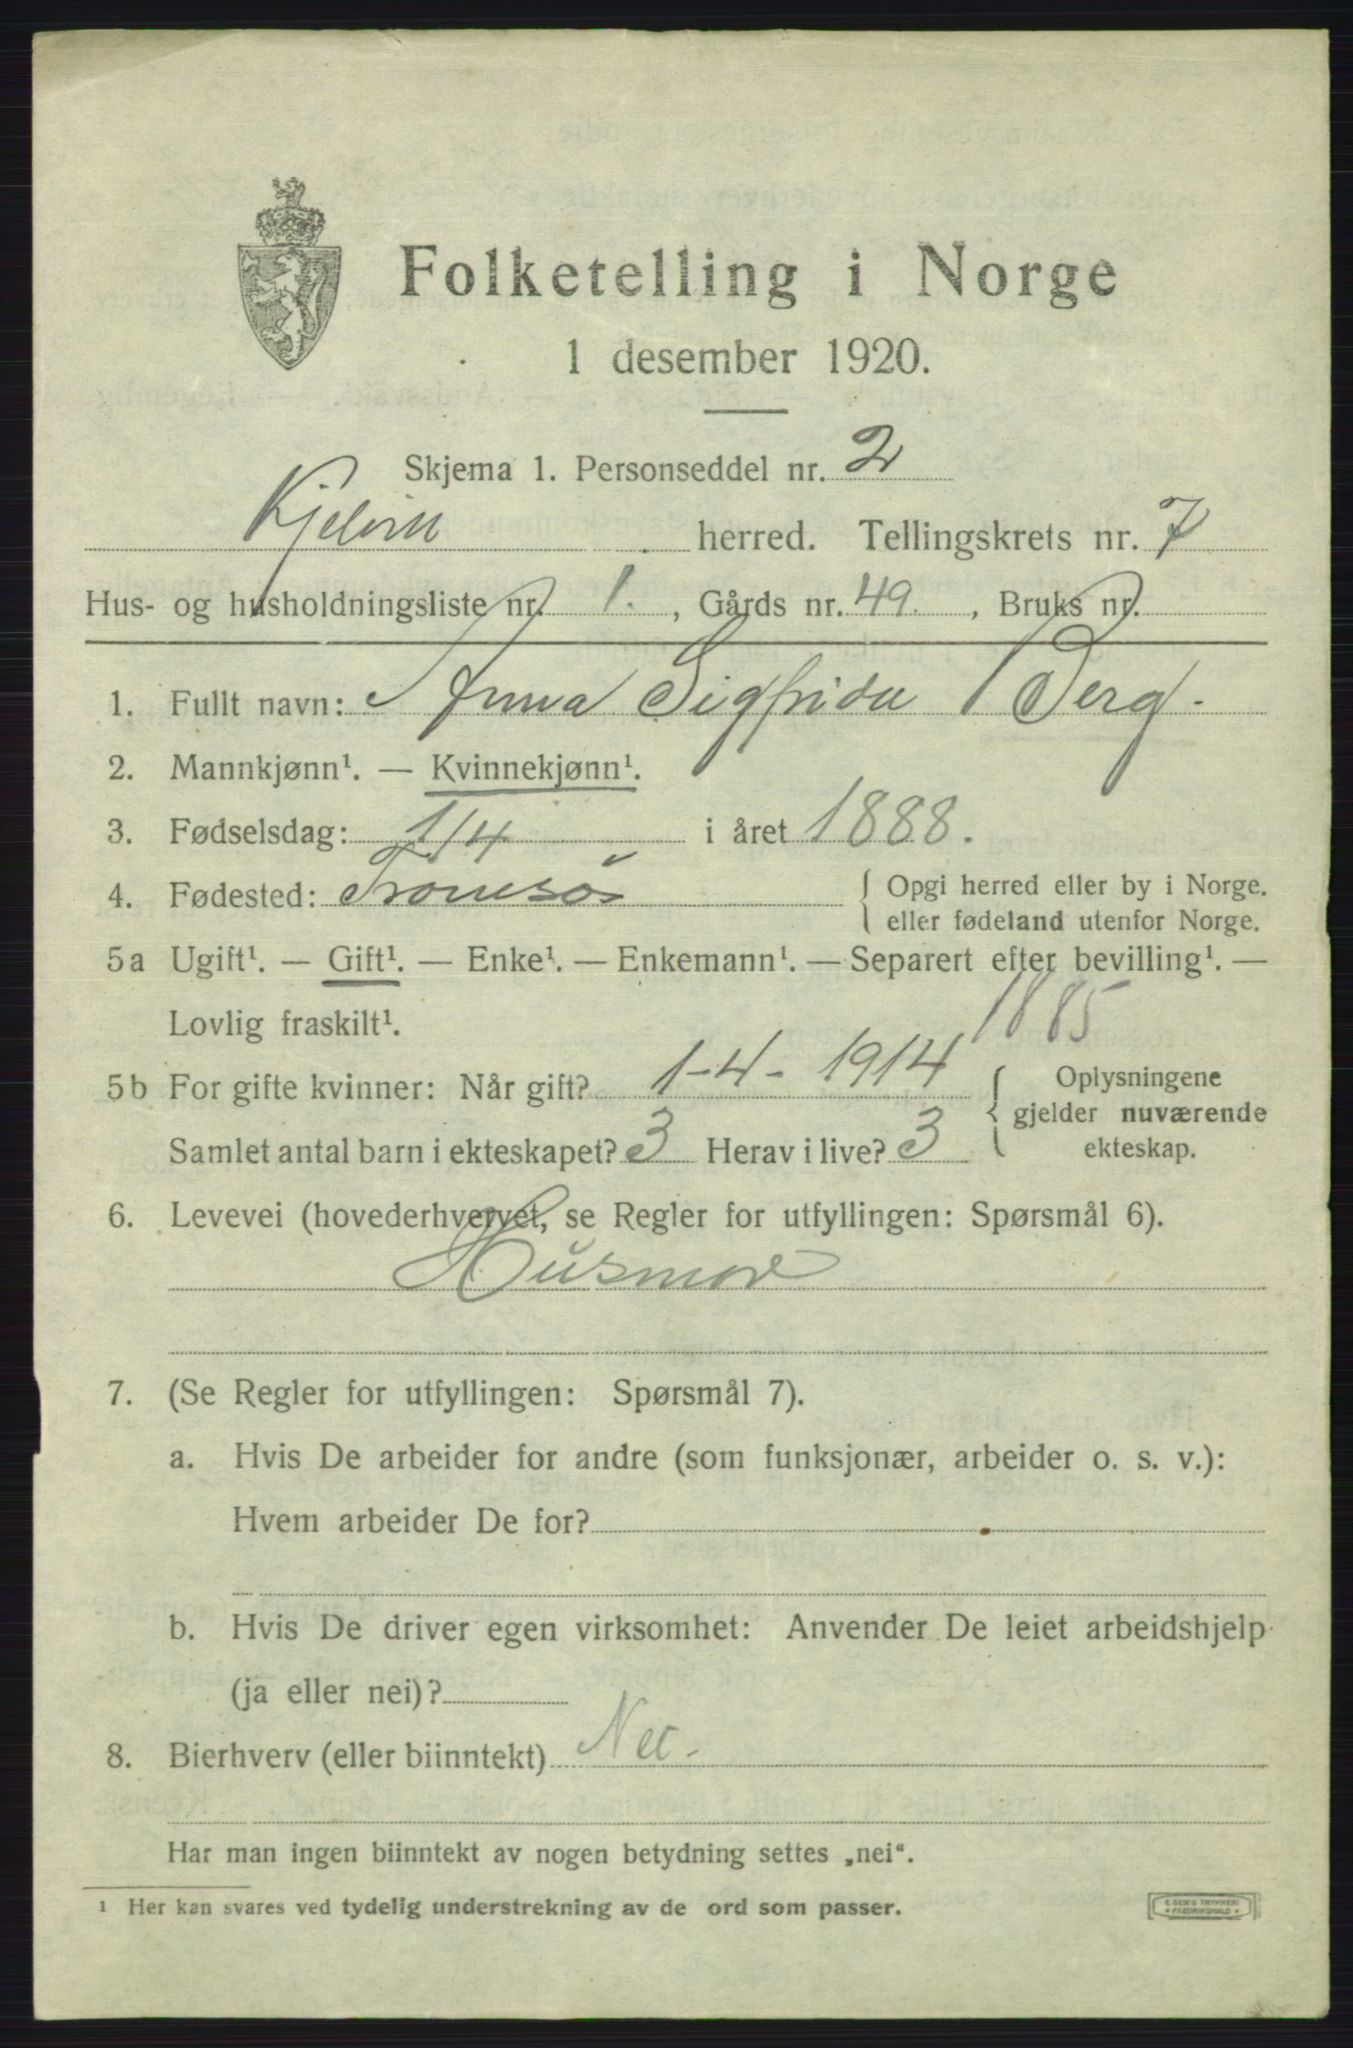 Folketelling i Norge
1 desember 1920.
Skjema 1. Personseddel nr. 2
Kjelvik herred. Tellingskrets nr. 7
Hus- og husholdningsliste nr. 1. , Gårds nr. 49. , Bruks nr.
1. Fullt navn: Anna Sigfrida Berg.
2. Mannkjønn¹. — Kvinnekjønn¹.
3. Fødselsdag: 1/4 i året 1888.
4. Fødested: Tromsö { Opgi herred eller by i Norge.
eller fødeland utenfor Norge.
5a Ugift¹. — Gift¹. — Enke¹. — Enkemann¹. — Separert efter bevilling¹. —
Lovlig fraskilt¹. 1885
5b For gifte kvinner: Når gift? 1-4-1914 { Oplysningene
gjelder nuværende
Samlet antal barn i ekteskapet? 3 Herav i live? 3 ekteskap.
6. Levevei (hovederhvervet, se Regler for utfyllingen: Spørsmål 6).
Husmor
7. (Se Regler for utfyllingen: Spørsmål 7).
a. Hvis De arbeider for andre (som funksjonær, arbeider o. s. v.):
Hvem arbeider De for?
b. Hvis De driver egen virksomhet: Anvender De leiet arbeidshjelp
(ja eller nei)?
8. Bierhverv (eller biinntekt) Nei.
Har man ingen biinntekt av nogen betydning settes „nei“.
¹ Her kan svares ved tydelig understrekning av de ord som passer.